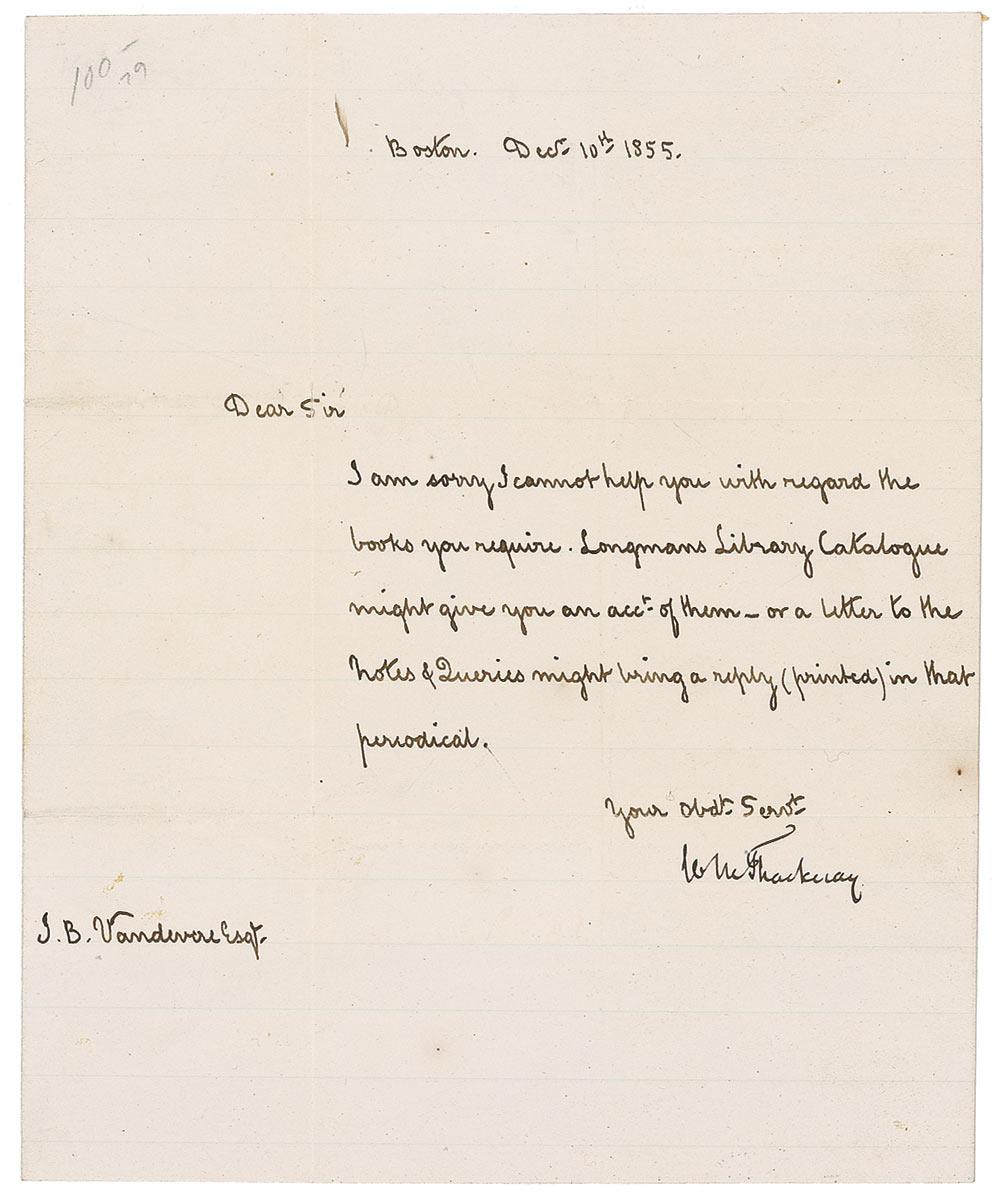 100-
79
Boston. Decr 10th 1855.
Dear Sir
I am sorry I cannot help you with regard the
books you require. Longmans Library Catalogue
might give you an acct of them _ or a letter to the
Notes & Queries might bring a reply (printed) in that
periodical.
Your obdt Servt
W M Thackeray
J. B. Vandevere Esqr.